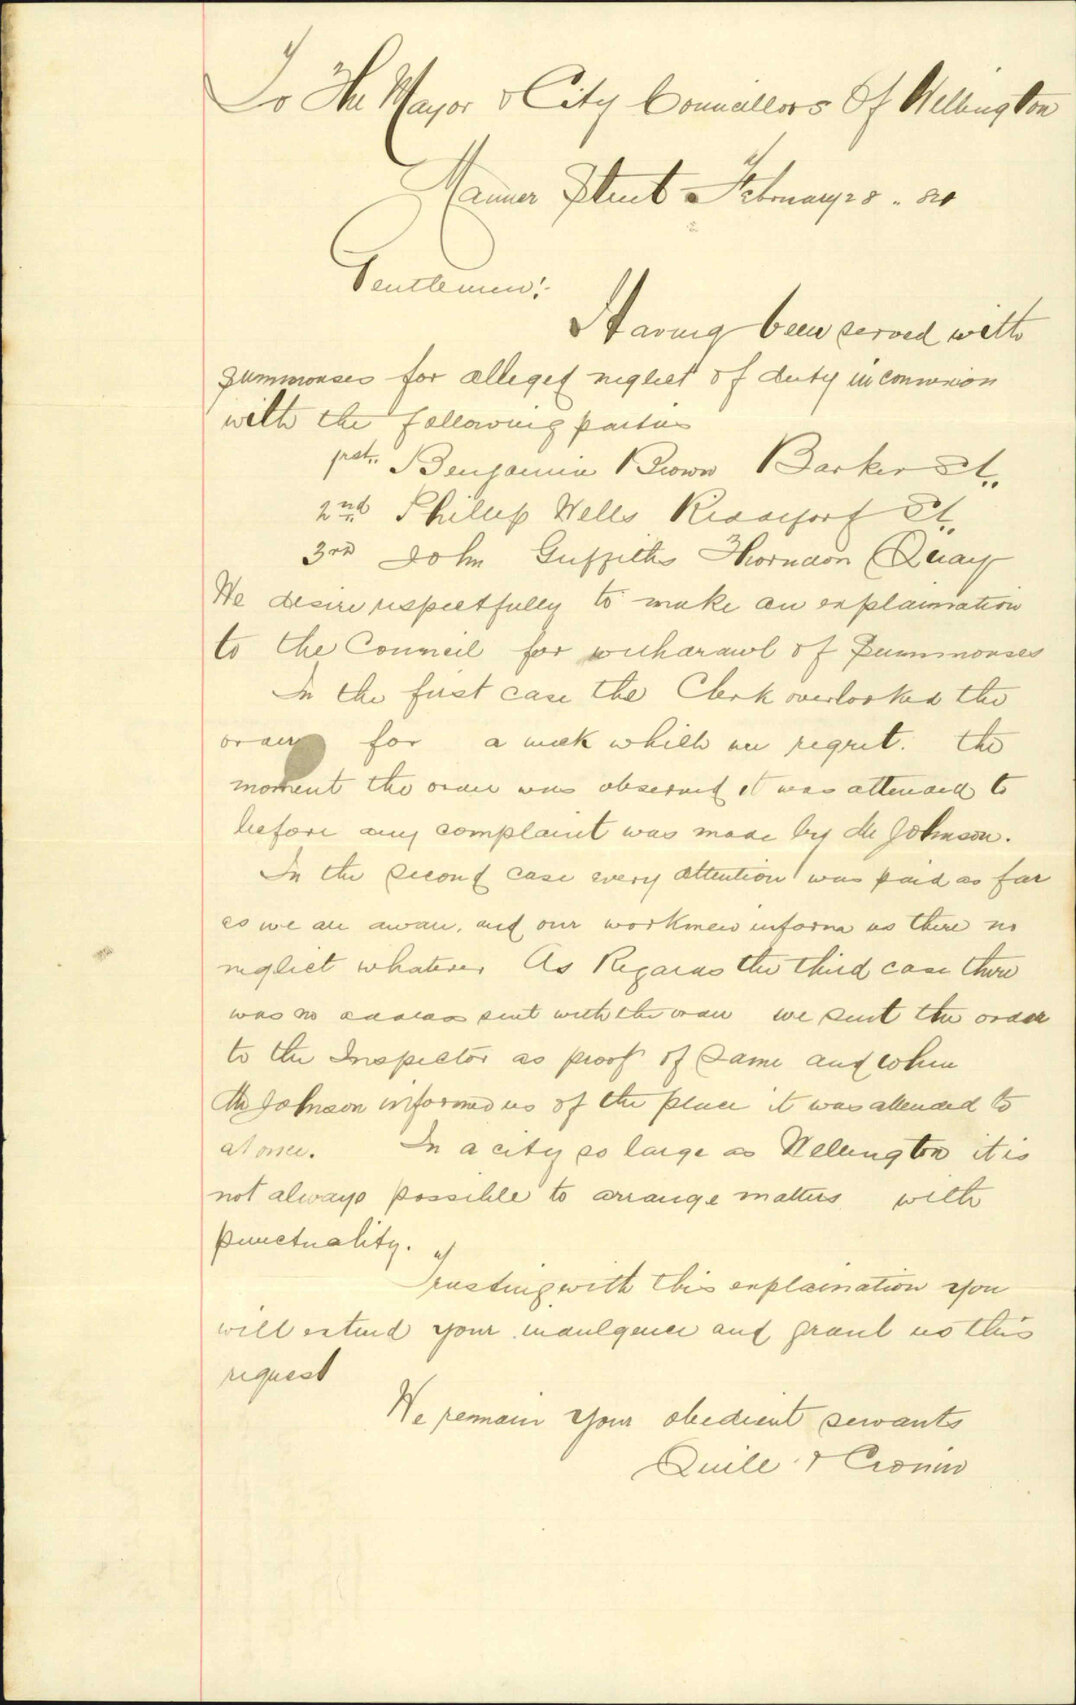 To The Mayor & City Councillors Of Wellington
Manner Street February 28 ..
Gentlemen:-
Having been served with
summonses for alleged neglect of duty in connexion
with the following parties
1st.. Benjamin Brown Barker St..
2nd Phillip Wells St..
3rd John Griffiths Thorndon Quay
We desire respectfully to make an explaination
to the Council for witharawl of Summonses
In the first case the Clerk overlooked the
order for a week which we regret. the
moment the order was observed it was attended to
before any complaint was made by Mr Johnson.
In the second case every attention was paid as far
as we are aware. and our workmen inform us there no
neglict whatever. As Regards the third case there
was no address sent with the order we sent the order
to the Inspector as proof of same and when
Mr Johnson informed us of the place it was attended to
at once. In a city so large as Wellington it is
not always possible to arrange matters with
punctuality.
Trusting with this explaination you
will extend your indulgence and grant us this
request
We remain your obedient servants
Quill & Cronin